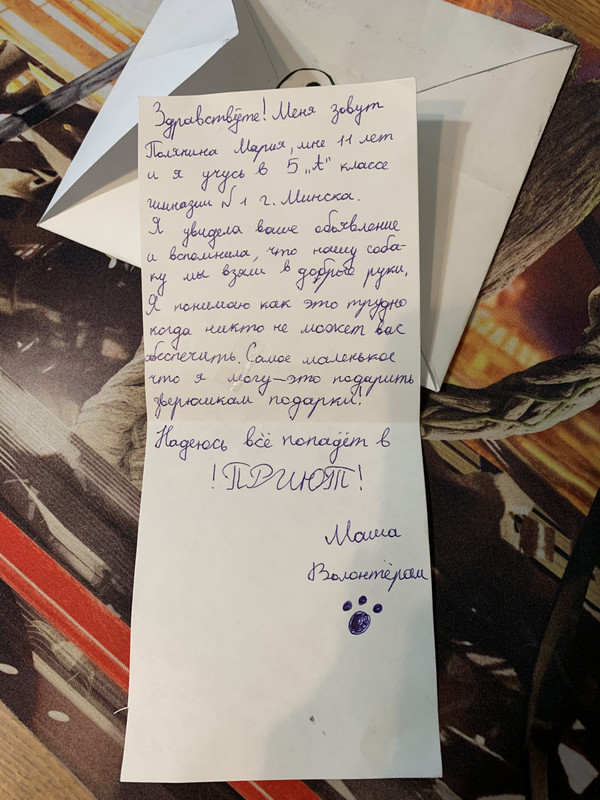 Здравствуйте! Меня зовут
Полякина Мария, мне 11 лет
и я учусь в 5 „А" классе
гимназии №1 г. Минска.
Я увидела ваше объявление
и вспомнила, что нашу соба-
ку мы взяли в добрые руки.
Я понимаю как это трудно
когда никто не может вас
обеспечить. Самое маленькое
что я могу – это подарить
зверюшкам подарки!
Надеюсь всё попадёт в
!ПРИЮТ!
Маша
Волонтёрам